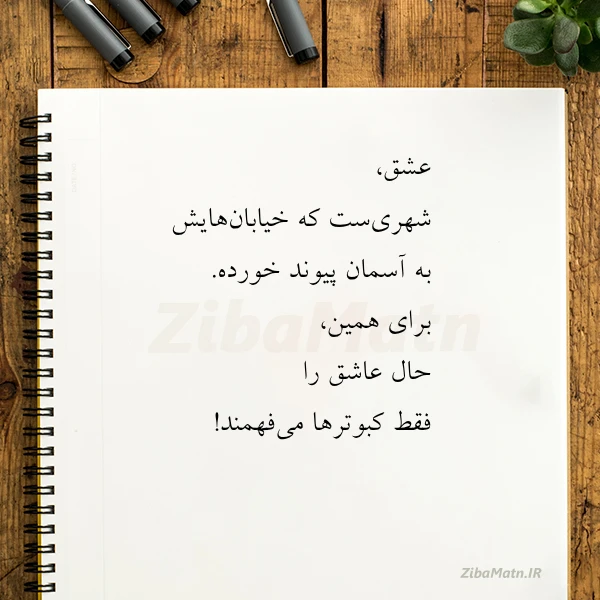 عشق،
شهری‌ست که خیابان‌هایش
به آسمان پیوند خورده.
برای همین،
حال عاشق را
فقط کبوترها می‌فهمند!
ZibaMatn
ZibaMatn.IR